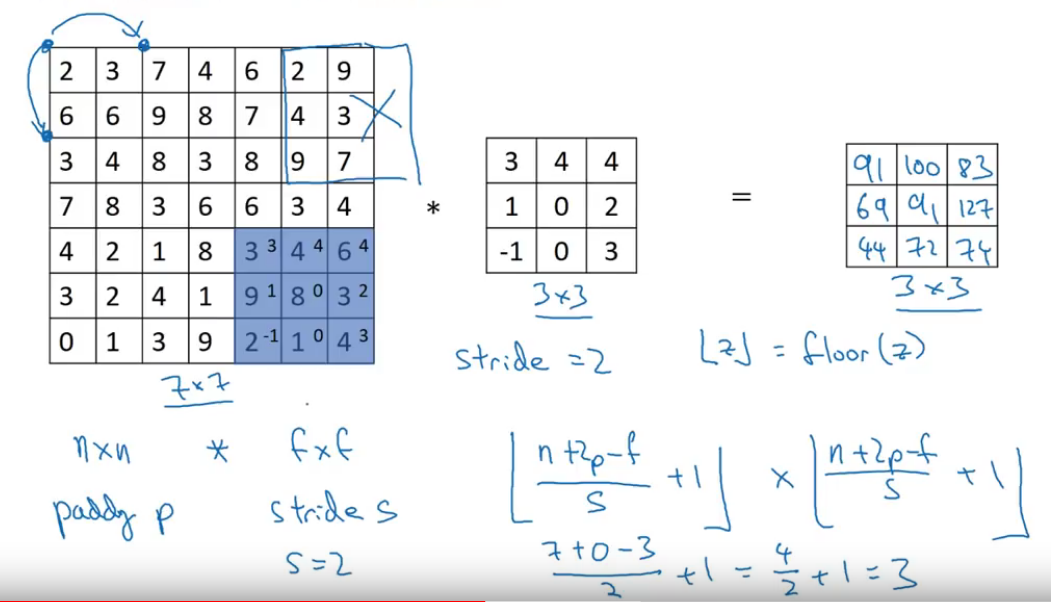 2 3 7 4 6 2 9
6 6 9 8 7 4 3
3 4 8 3 8 9 7
7 8 3 6 6 3 4
4 2 1 8 3 3 4 4 6 4
3 2 4 1 9 1 8 0 3 2
0 1 3 9 2 -1 1 0 4 3
7×7
*
3 4 4
1 0 2
-1 0 3
3×3
stride = 2
=
91 100 83
69 91 127
44 72 74
3×3
⌊z⌋ = floor(z)
n×n * f×f
padding p stride s
s=2
⌊(n+2p-f)/s + 1⌋ × ⌊(n+2p-f)/s + 1⌋
(7+0-3)/2 + 1 = 4/2 + 1 = 3